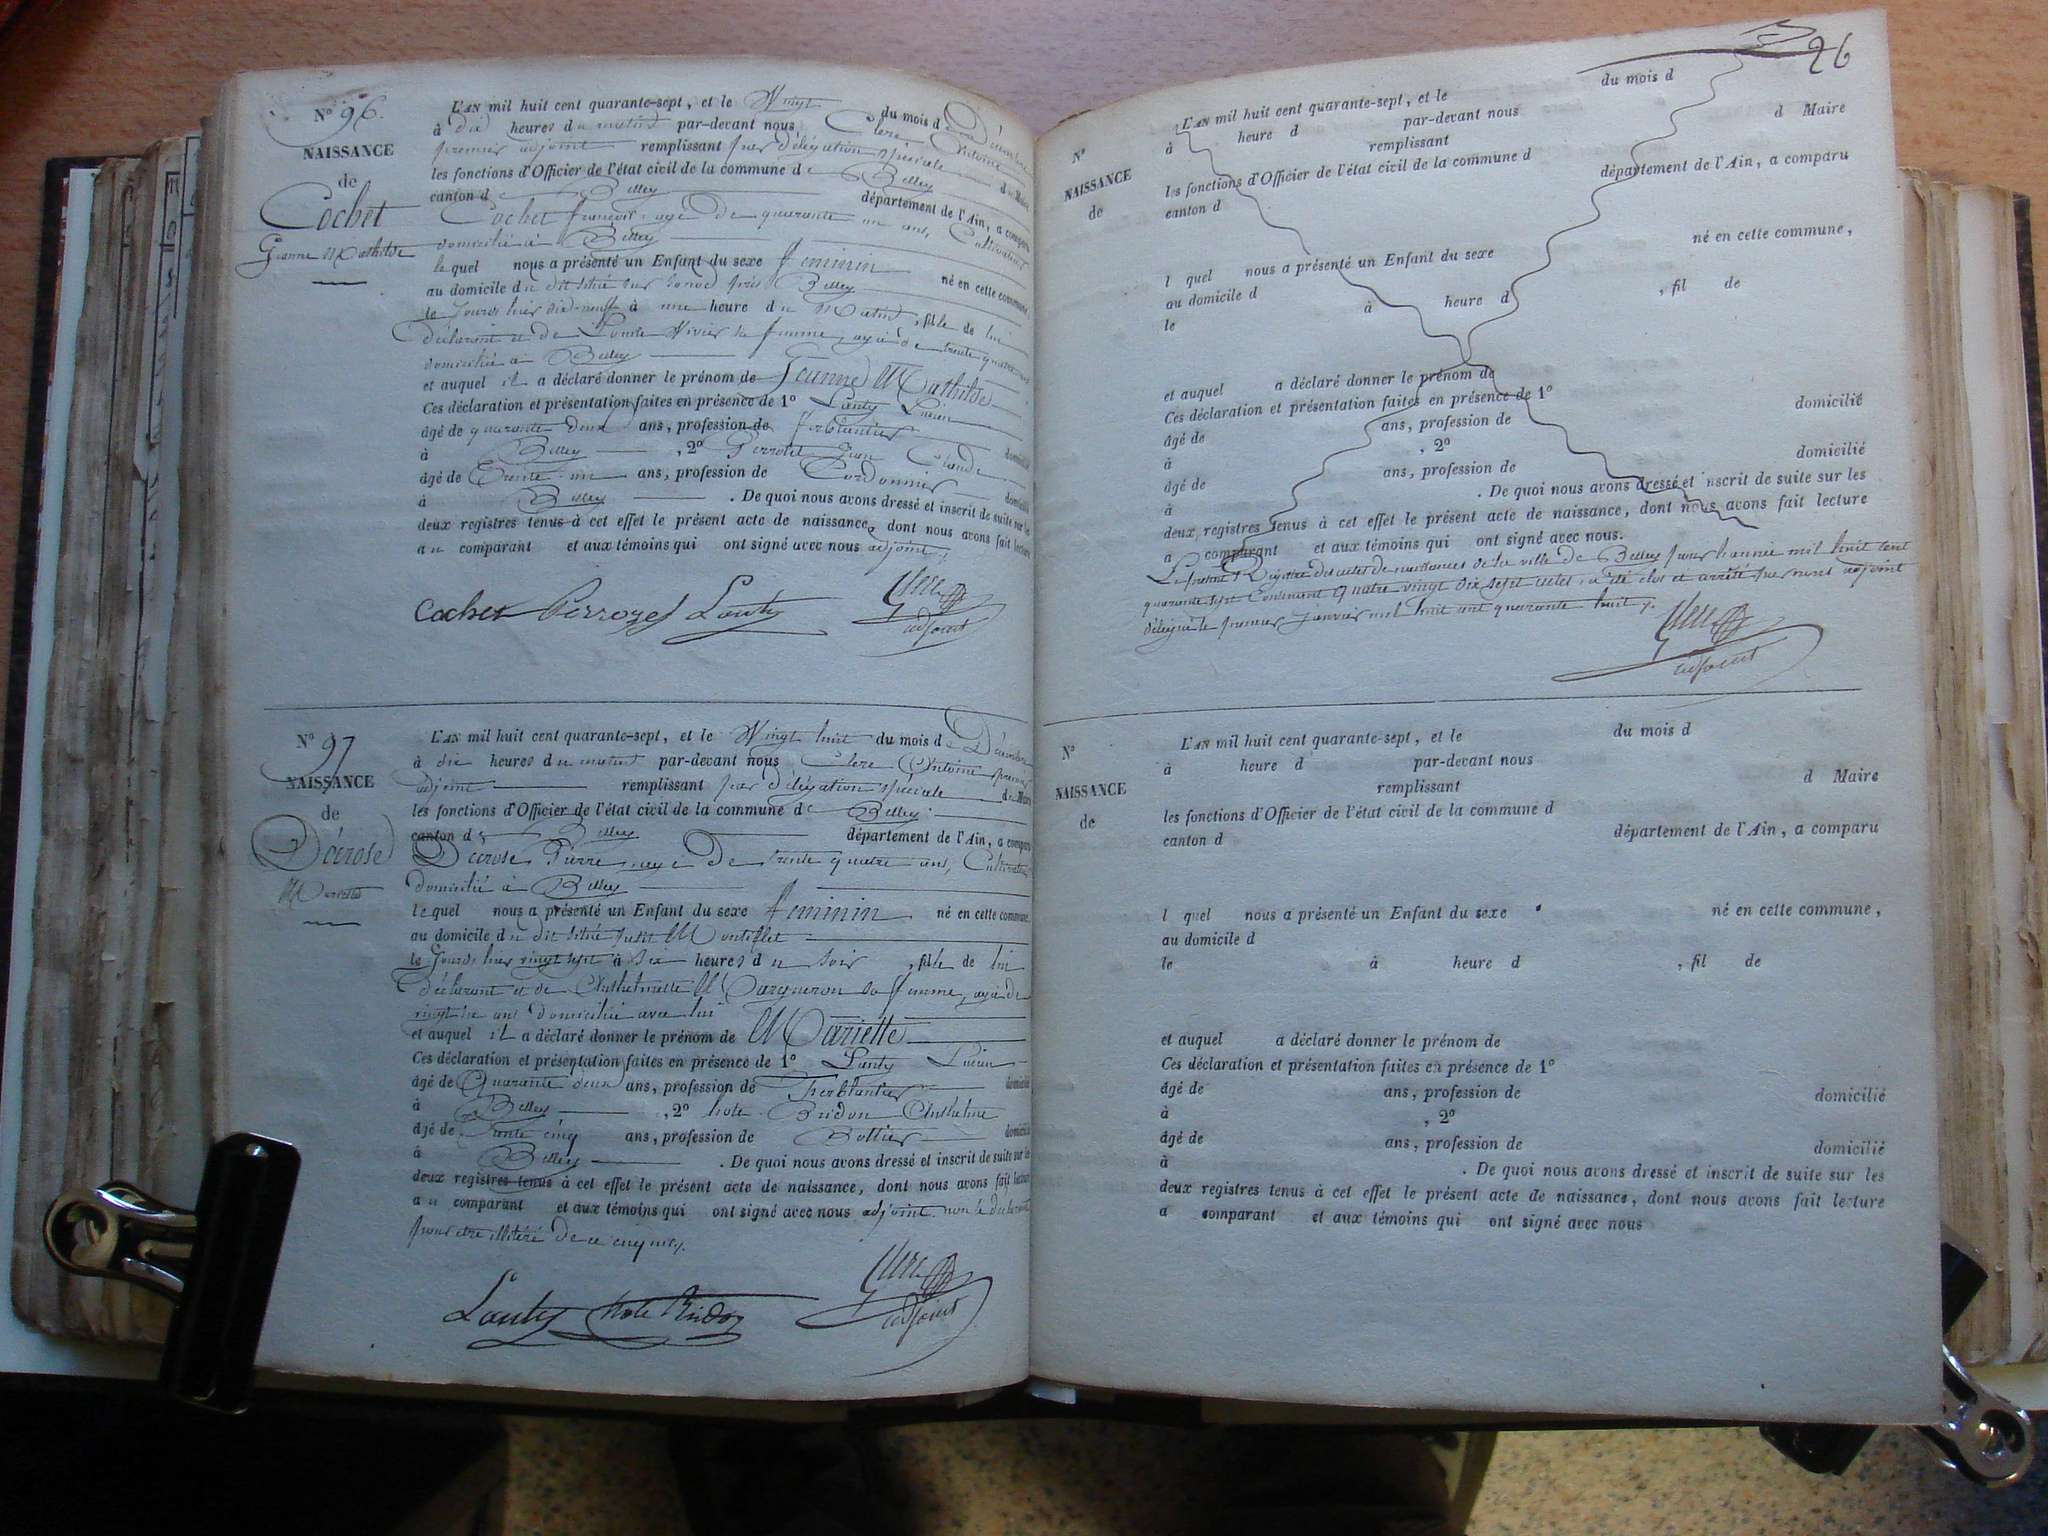 N° 96.
NAISSANCE
de
Cochet
Jeanne Mathilde
L'AN mil huit cent quarante-sept, et le Vingt du mois de Décembre
à dix heures du matin par-devant nous Clerc Antoine
premier adjoint remplissant par délégation spéciale du Maire
les fonctions d'Officier de l'état civil de la commune de Belley
canton de Belley département de l'Ain, a comparu
Cochet François, agé de quarante un ans, Cultivateur
domicilié à Belley
lequel nous a présenté un Enfant du sexe féminin né en cette commune,
au domicile du dit situé sur près Belley
le jourd'hier dix-neuf à une heure du Matin, fille de lui
déclarant et de Vivier sa femme, agée de trente quatre ans
domiciliée à Belley
et auquel il a déclaré donner le prénom de Jeanne Mathilde
Ces déclaration et présentation faites en présence de 1° Lanty Lucien
âgé de quarante deux ans, profession de ferblantier domicilié
à Belley, 2° Perrozet Jean Claude
âgé de Trente un ans, profession de Cordonnier domicilié
à Belley. De quoi nous avons dressé et inscrit de suite sur les
deux registres tenus à cet effet le présent acte de naissance, dont nous avons fait lecture
au comparant et aux témoins qui ont signé avec nous adjoint.
Cochet Perrozet Lanty Clerc
adjoint
N° 97
NAISSANCE
de
Décrose
Mariette
L'AN mil huit cent quarante-sept, et le Vingt huit du mois de Décembre
à dix heures du matin par-devant nous Clerc Antoine premier
adjoint remplissant par délégation spéciale du Maire
les fonctions d'Officier de l'état civil de la commune de Belley
canton de Belley département de l'Ain, a comparu
Décrose Pierre, agé de trente quatre ans, Cultivateur
domicilié à Belley
lequel nous a présenté un Enfant du sexe féminin né en cette commune,
au domicile du dit situé petit Montillet
le jourd'hier vingt sept à six heures du soir, fille de lui
déclarant et de Anthelmette Margueron sa femme, agée de
ans domiciliée avec lui
et auquel il a déclaré donner le prénom de Mariette
Ces déclaration et présentation faites en présence de 1° Lanty Lucien
âgé de Quarante deux ans, profession de Ferblantier domicilié
à Belley, 2° hote Bridon Anthelme
âgé de Trente cinq ans, profession de Bottier domicilié
à Belley. De quoi nous avons dressé et inscrit de suite sur les
deux registres tenus à cet effet le présent acte de naissance, dont nous avons fait lecture
au comparant et aux témoins qui ont signé avec nous adjoint non le déclarant
pour être illitéré de ce enquis.
Lanty hote Bridon Clerc
adjoint
26
N°
NAISSANCE
de
L'AN mil huit cent quarante-sept, et le du mois d
à heure d par-devant nous
remplissant d Maire
les fonctions d'Officier de l'état civil de la commune d
canton d département de l'Ain, a comparu
l quel nous a présenté un Enfant du sexe né en cette commune,
au domicile d
le à heure d , fil de
et auquel a déclaré donner le prénom de
Ces déclaration et présentation faites en présence de 1°
âgé de ans, profession de domicilié
à , 2°
âgé de ans, profession de domicilié
à . De quoi nous avons dressé et inscrit de suite sur les
deux registres tenus à cet effet le présent acte de naissance, dont nous avons fait lecture
a comparant et aux témoins qui ont signé avec nous.
Le présent Régistre des actes de naissances de la ville de Belley pour l'année mil huit cent
quarante sept Contenant Quatre vingt dix sept actes, a été clos et arrêté par nous adjoint
délégué le premier Janvier mil huit cent quarante huit.
Clerc
adjoint
N°
NAISSANCE
de
L'AN mil huit cent quarante-sept, et le du mois d
à heure d par-devant nous
remplissant d Maire
les fonctions d'Officier de l'état civil de la commune d
canton d département de l'Ain, a comparu
l quel nous a présenté un Enfant du sexe né en cette commune,
au domicile d
le à heure d , fil de
et auquel a déclaré donner le prénom de
Ces déclaration et présentation faites en présence de 1°
âgé de ans, profession de domicilié
à , 2°
âgé de ans, profession de domicilié
à . De quoi nous avons dressé et inscrit de suite sur les
deux registres tenus à cet effet le présent acte de naissance, dont nous avons fait lecture
a comparant et aux témoins qui ont signé avec nous